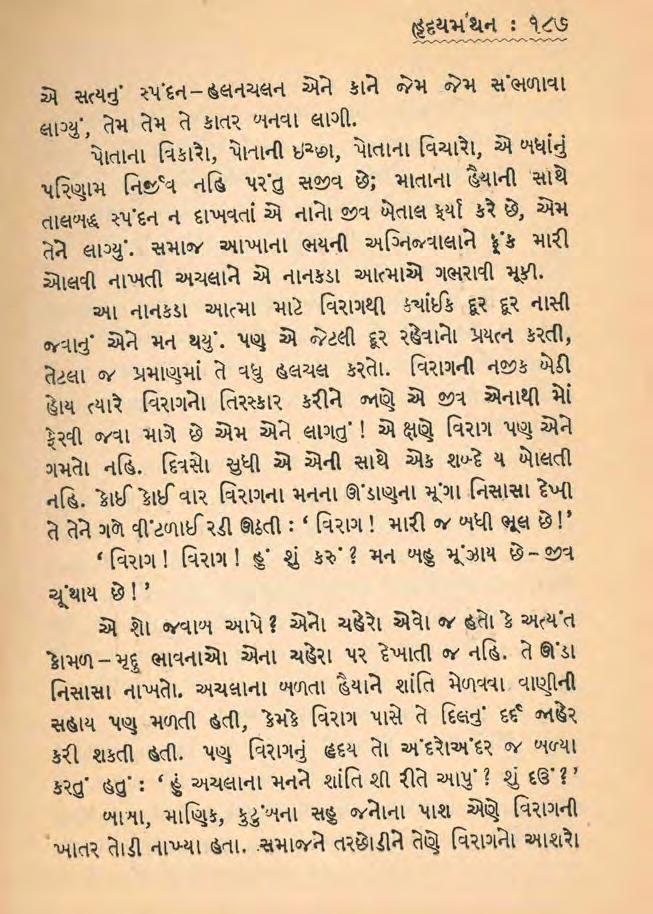 હૃદયમંથન : ૧૮૭
એ સત્યનું સ્પંદન–હલનચલન એને કાને જેમ જેમ સંભળાવા
લાગ્યું, તેમ તેમ તે કાતર બનવા લાગી.
પોતાના વિકારો, પોતાની ઇચ્છા, પોતાના વિચારો, એ બધાંનું
પરિણામ નિર્જીવ નહિ પરંતુ સજીવ છે; માતાના હૈયાની સાથે
તાલબદ્ધ સ્પંદન ન દાખવતાં એ નાનો જીવ બેતાલ ફર્યા કરે છે, એમ
તેને લાગ્યું. સમાજ આખાના ભયની અગ્નિજ્વાલાને ફૂંક મારી
ઓલવી નાખતી અચલાને એ નાનકડા આત્માએ ગભરાવી મૂકી.
આ નાનકડા આત્મા માટે વિરાગથી ક્યાંઈક દૂર દૂર નાસી
જવાનું એને મન થયું. પણ એ જેટલી દૂર રહેવાનો પ્રયત્ન કરતી,
તેટલા જ પ્રમાણમાં તે વધુ હલચલ કરતો. વિરાગની નજીક બેઠી
હોય ત્યારે વિરાગનો તિરસ્કાર કરીને જાણે એ જીવ એનાથી મોં
ફેરવી જવા માગે છે એમ એને લાગતું ! એ ક્ષણે વિરાગ પણ એને
ગમતો નહિ. દિવસો સુધી એ એની સાથે એક શબ્દે ય બોલતી
નહિ. કોઈ કોઈ વાર વિરાગના મનના ઊંડાણના મૂંગા નિસાસા દેખી
તે તેને ગળે વીંટળાઈ રડી ઊઠતી : ‘ વિરાગ ! મારી જ બધી ભૂલ છે !’
‘ વિરાગ ! વિરાગ ! હું શું કરું ? મન બહુ મૂંઝાય છે – જીવ
ચૂંથાય છે ! ’
એ શો જવાબ આપે ? એનો ચહેરો એવો જ હતો કે અત્યંત
કોમળ – મૃદુ ભાવનાઓ એના ચહેરા પર દેખાતી જ નહિ. તે ઊંડા
નિસાસા નાખતો. અચલાના બળતા હૈયાને શાંતિ મેળવવા વાણીની
સહાય પણ મળતી હતી, કેમકે વિરાગ પાસે તે દિલનું દર્દ જાહેર
કરી શકતી હતી. પણ વિરાગનું હૃદય તો અંદરોઅંદર જ બળ્યા
કરતું હતું : ‘ હું અચલાના મનને શાંતિ શી રીતે આપું ? શું દઉં ?’
બાબા, માણિક, કુટુંબના સહુ જનોના પાશ એણે વિરાગની
ખાતર તોડી નાખ્યા હતા. સમાજને તરછોડીને તેણે વિરાગનો આશરો